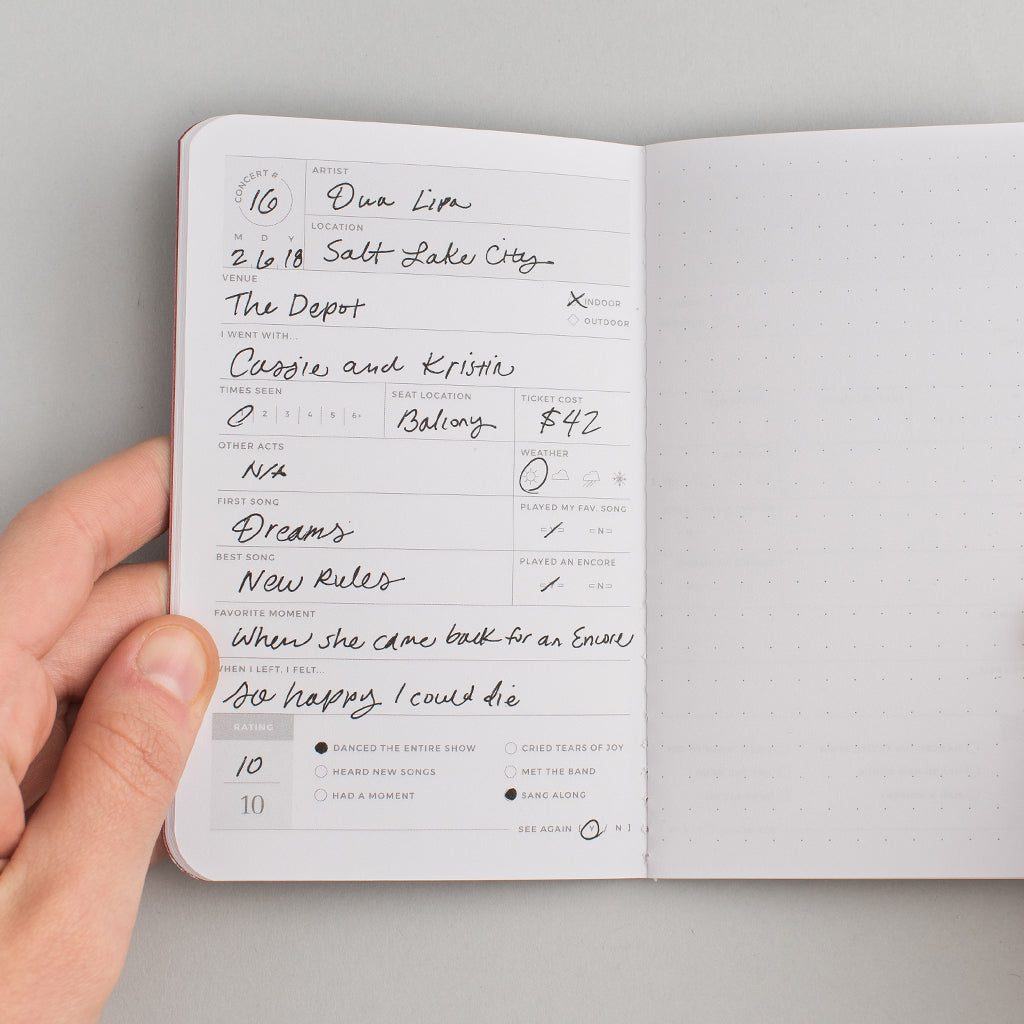 CONCERT #
16
ARTIST
Dua Lipa
M D Y
2 6 18
LOCATION
Salt Lake City
VENUE
The Depot
X INDOOR
OUTDOOR
I WENT WITH...
Cassie and Kristin
TIMES SEEN
2 3 4 5 6+
SEAT LOCATION
Balcony
TICKET COST
$42
OTHER ACTS
N/A
WEATHER
FIRST SONG
Dreams
PLAYED MY FAV. SONG
Y N
BEST SONG
New Rules
PLAYED AN ENCORE
Y N
FAVORITE MOMENT
When she came back for an Encore
WHEN I LEFT, I FELT...
So happy I could die
RATING
10
10
DANCED THE ENTIRE SHOW
CRIED TEARS OF JOY
HEARD NEW SONGS
MET THE BAND
HAD A MOMENT
SANG ALONG
SEE AGAIN [ Y / N ]